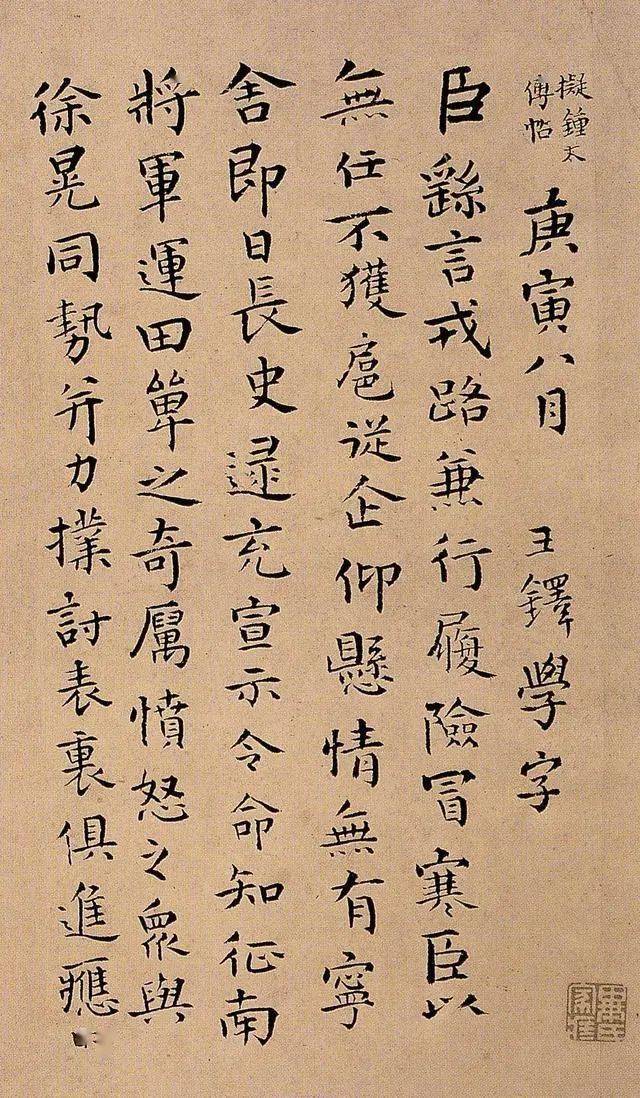 擬鍾太
傅帖
庚寅八月 王鐸學字
臣繇言戎路兼行履險冒寒臣以
無任不獲扈從企仰懸情無有寧
舍即日長史逯充宣示令命知征南
將軍運田單之奇厲憤怒之眾與
徐晃同勢并力撲討表裏俱進應